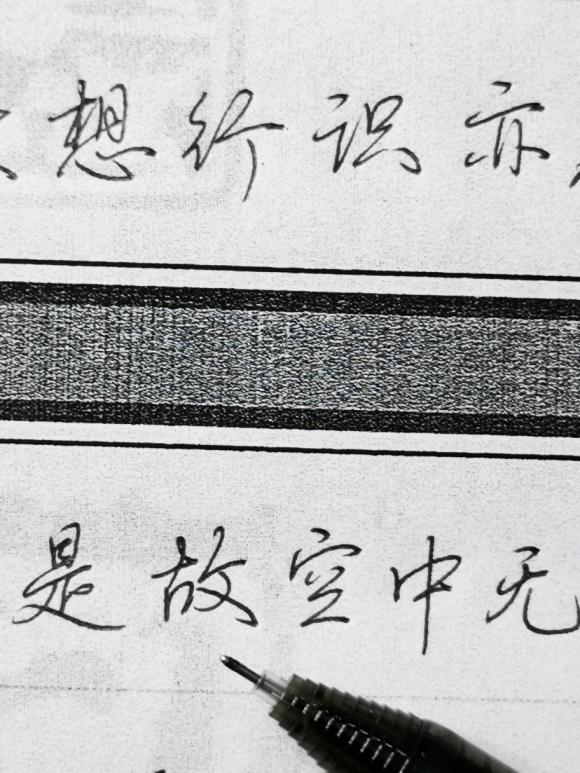 想行识亦
是故空中无